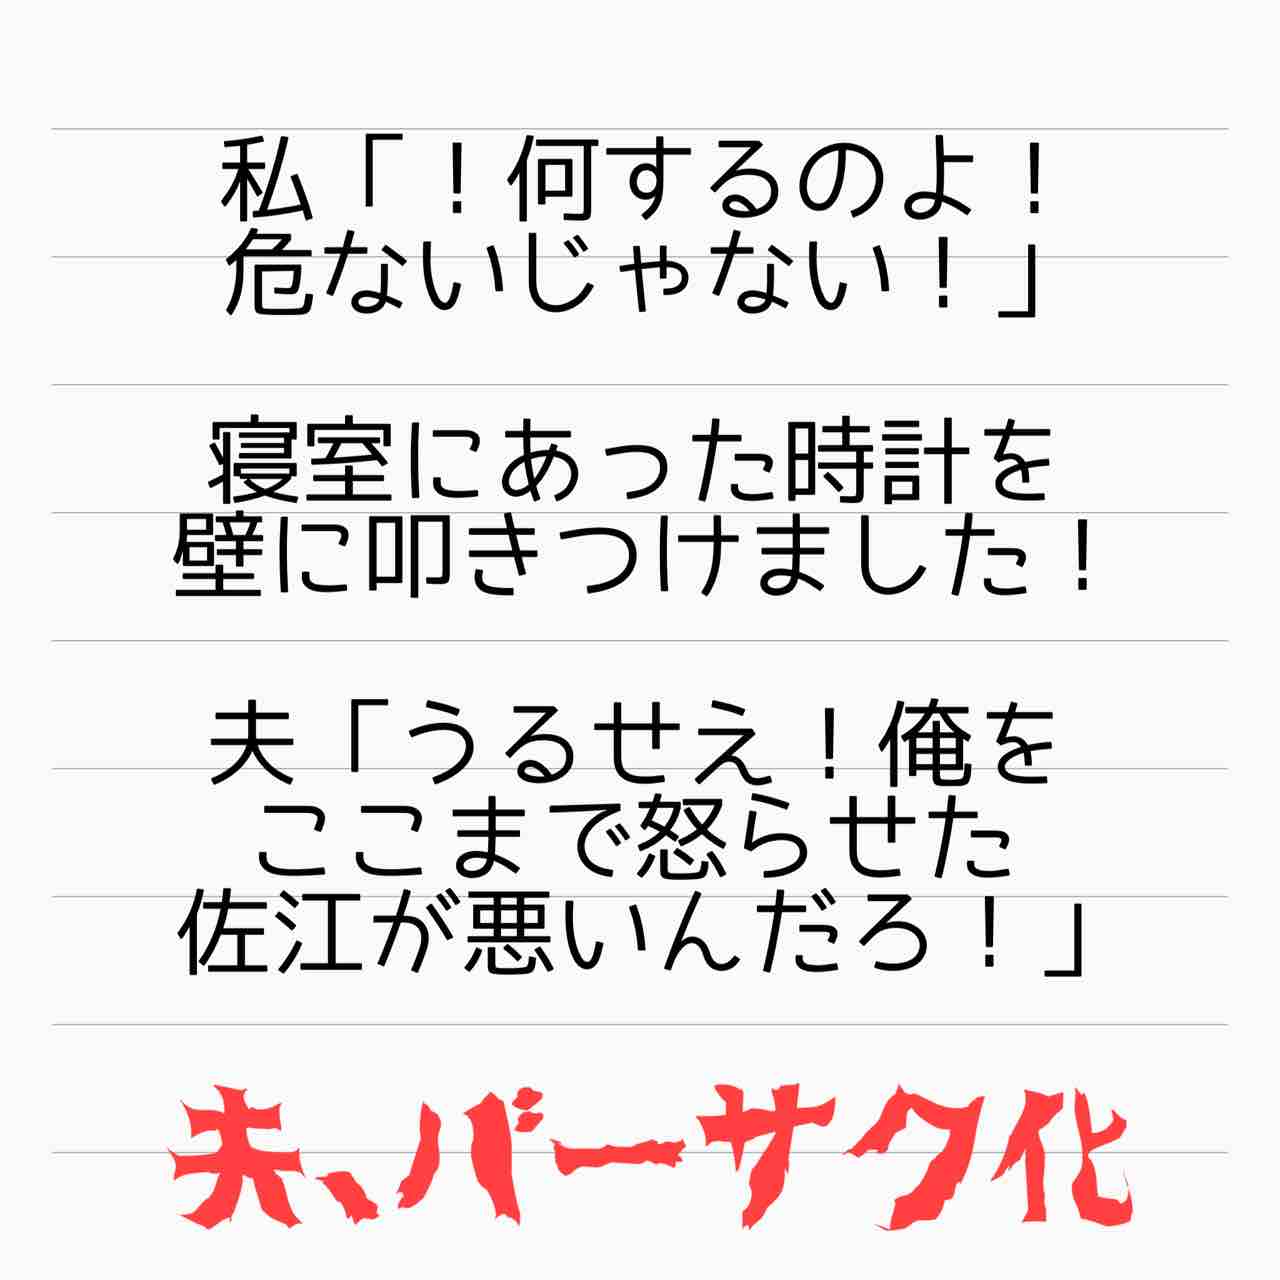 私「！何するのよ！
危ないじゃない！」
寝室にあった時計を
壁に叩きつけました！
夫「うるせえ！俺を
ここまで怒らせた
佐江が悪いんだろ！」
夫、バーサク化